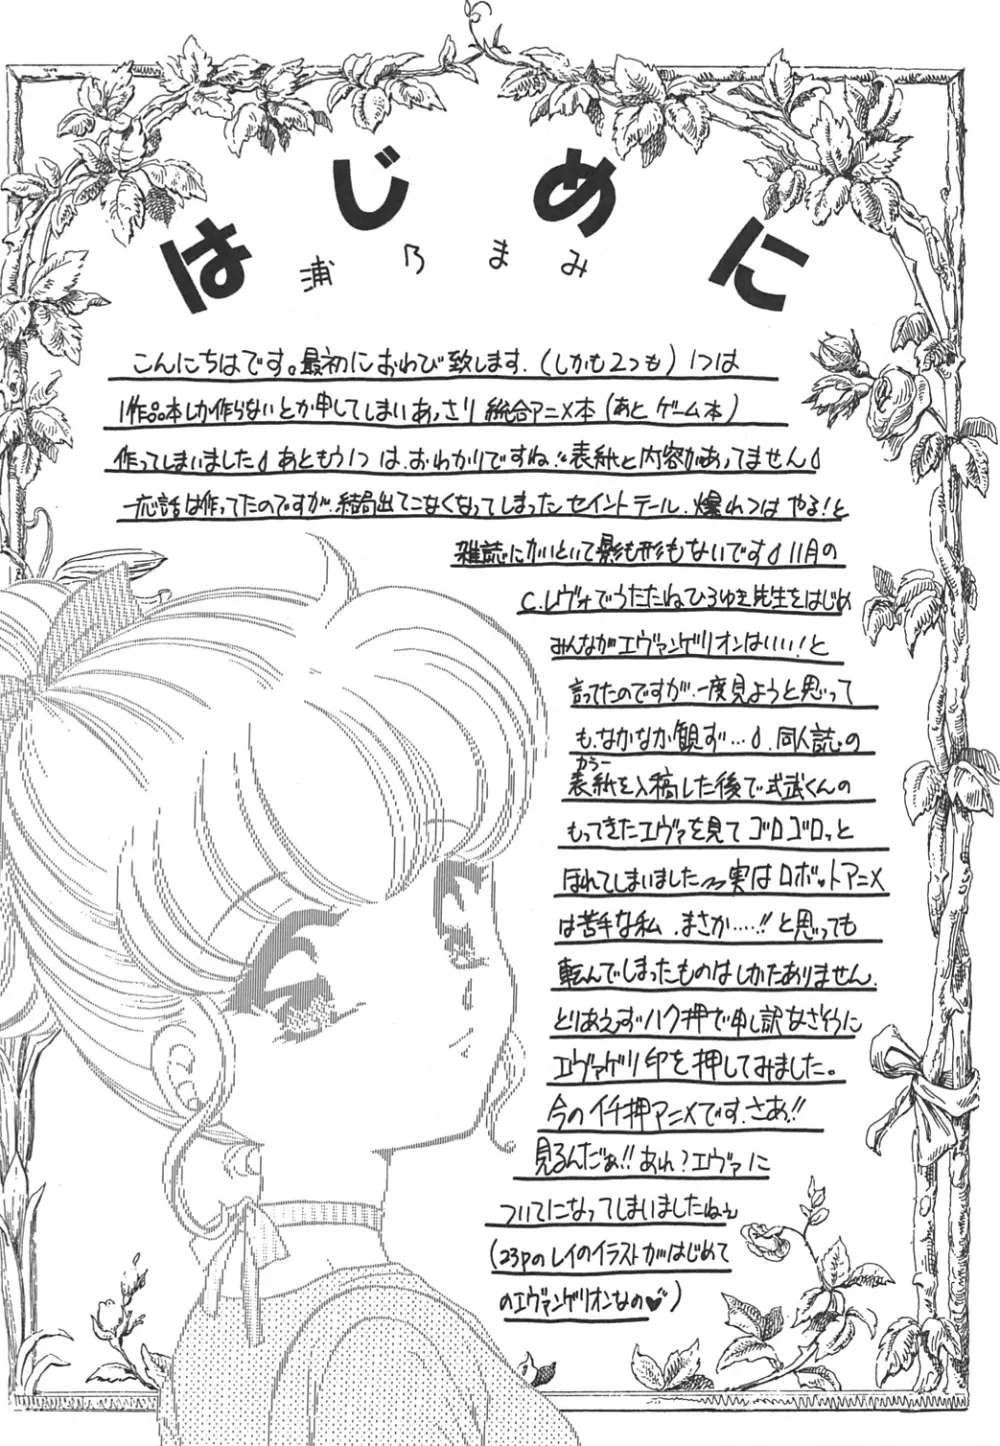 はじめに
浦乃まみ
こんにちはです。最初におわび致します.(しかも2つも)1つは
1作品本しか作らないとか申してしまいあっさり総合アニメ本(あとゲーム本)
作ってしまいました あともう1つは.おわかりですね.表紙と内容があってません
一応話は作ってたのですが.結局出てこなくなってしまったセイントテール.爆れつはやる!と
雑誌にかいといて影も形もないです 11月の
C.レヴォでうたたねひろゆき先生をはじめ
みんながエヴァンゲリオンはいい!と
言ってたのですが.一度見ようと思って
も.なかなか観ず….同人誌の
カラー
表紙を入稿した後で式武くんの
もってきたエヴァを見てゴロゴロっと
ほれてしまいました 実はロボットアニメ
は苦手な私.まさか……!!と思っても
転んでしまったものはしかたありません.
とりあえずハク押で申し訳なさそうに
エヴァゲリ印を押してみました。
今のイチ押アニメです.さあ!!
見るんだぁ!!あれ?エヴァに
ついてになってしまいましたねぇ
(23Pのレイのイラストがはじめて
のエヴァンゲリオンなの♥)